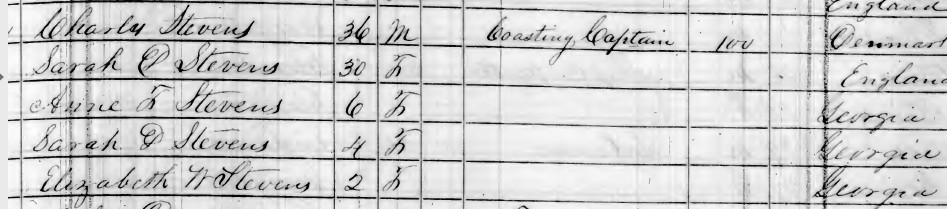 England
Charly Stevens 36 M Coasting Captain 100 Denmark
Sarah D Stevens 30 F England
Anne F Stevens 6 F Georgia
Sarah D Stevens 4 F Georgia
Elizabeth W Stevens 2 F Georgia